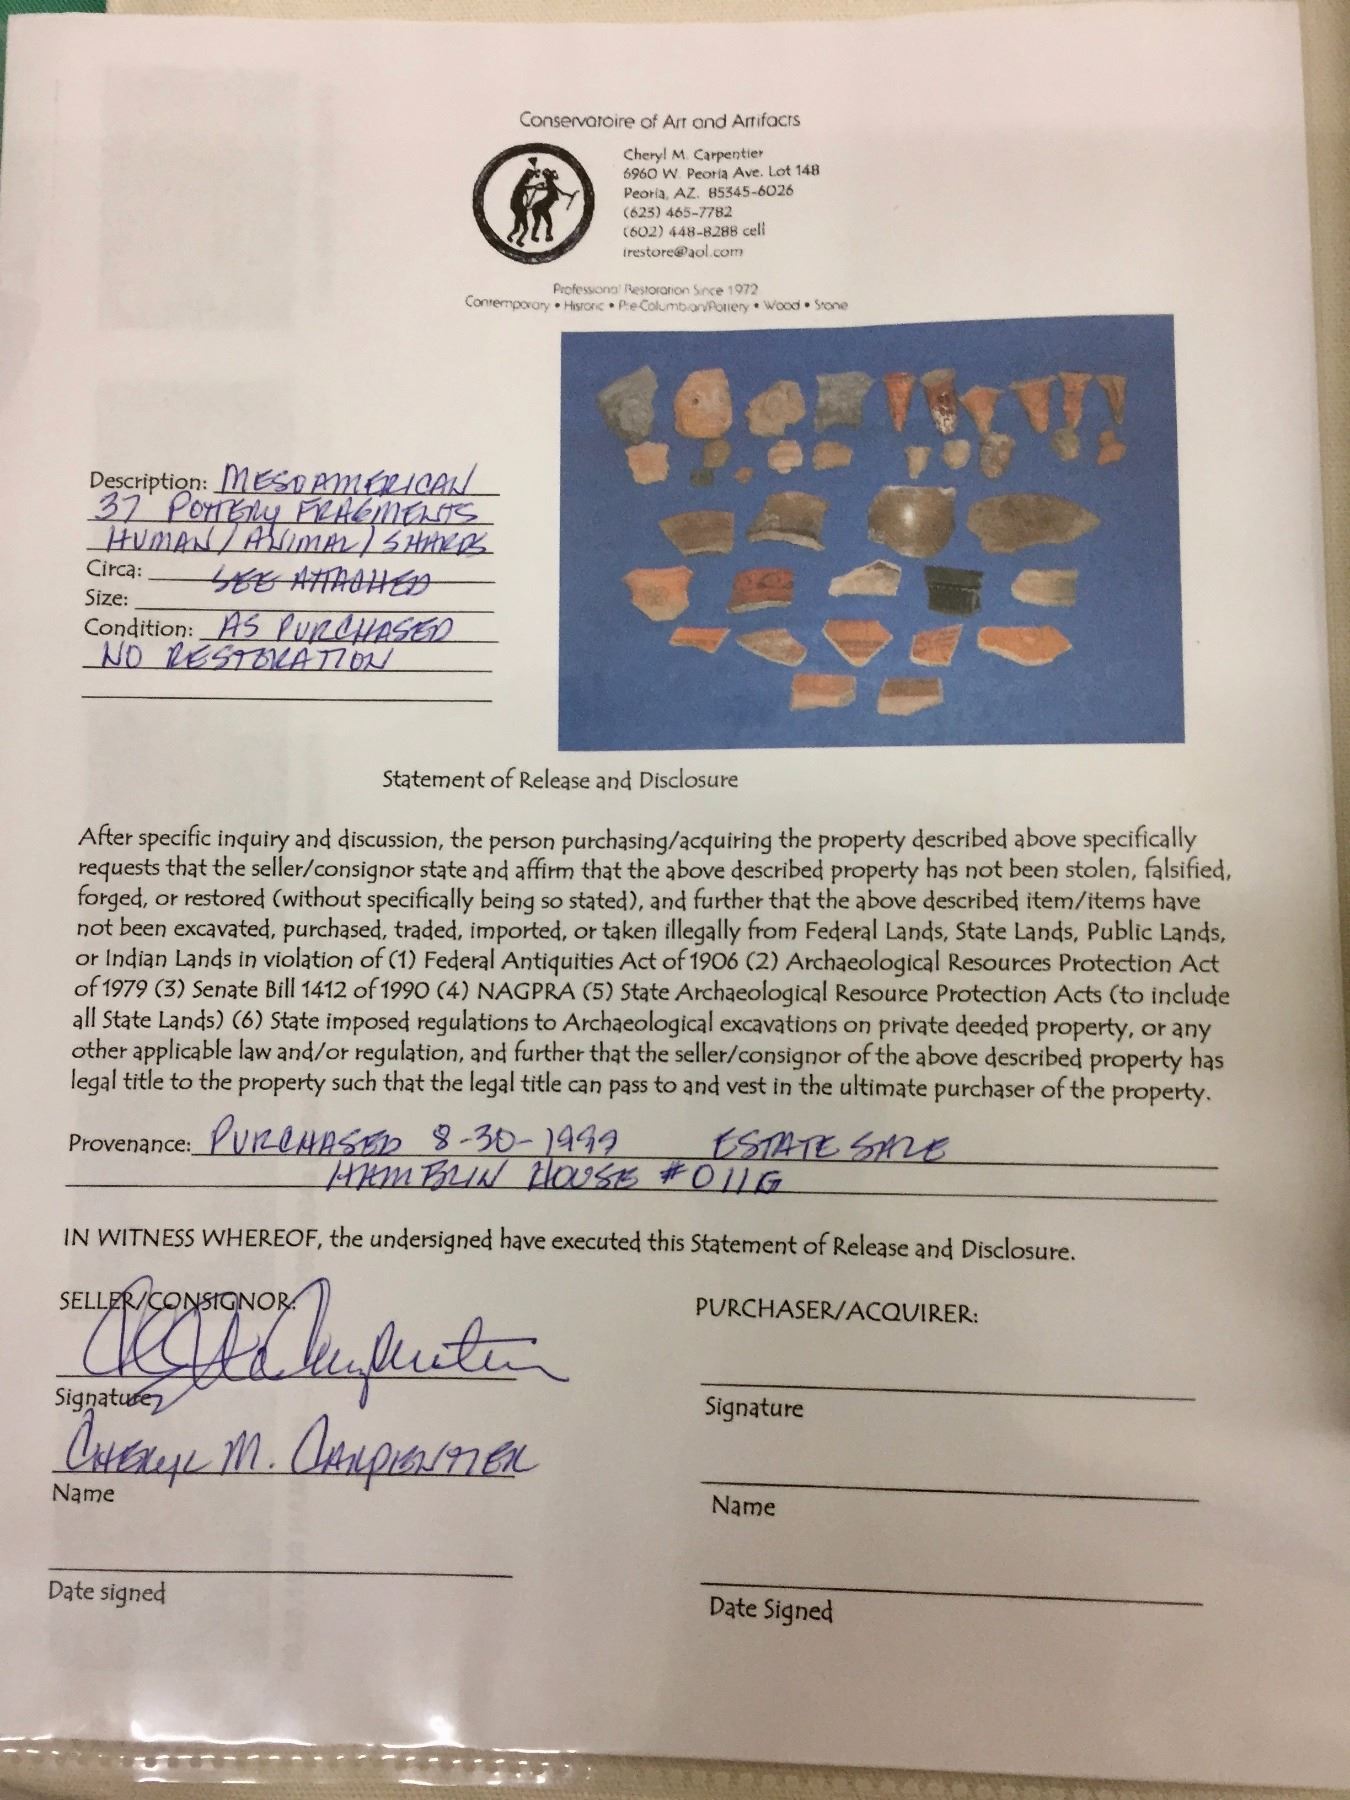 Conservatoire of Art and Artifacts
Cheryl M. Carpentier
6960 W. Peoria Ave. Lot 148
Peoria, AZ. 85345-6026
(623) 465-7782
(602) 448-8288 cell
irestore@aol.com
Professional Restoration Since 1972
Contemporary • Historic • Pre-Columbian/Pottery • Wood • Stone
Description: MESOAMERICAN
37 POTTERY FRAGMENTS
HUMAN / ANIMAL / SHARDS
Circa: SEE ATTACHED
Size:
Condition: AS PURCHASED
NO RESTORATION
Statement of Release and Disclosure
After specific inquiry and discussion, the person purchasing/acquiring the property described above specifically
requests that the seller/consignor state and affirm that the above described property has not been stolen, falsified,
forged, or restored (without specifically being so stated), and further that the above described item/items have
not been excavated, purchased, traded, imported, or taken illegally from Federal Lands, State Lands, Public Lands,
or Indian Lands in violation of (1) Federal Antiquities Act of 1906 (2) Archaeological Resources Protection Act
of 1979 (3) Senate Bill 1412 of 1990 (4) NAGPRA (5) State Archaeological Resource Protection Acts (to include
all State Lands) (6) State imposed regulations to Archaeological excavations on private deeded property, or any
other applicable law and/or regulation, and further that the seller/consignor of the above described property has
legal title to the property such that the legal title can pass to and vest in the ultimate purchaser of the property.
Provenance: PURCHASED 8-30-1999 ESTATE SALE
HAMBLIN HOUSE #011G
IN WITNESS WHEREOF, the undersigned have executed this Statement of Release and Disclosure.
SELLER/CONSIGNOR:
Signature
CHERYL M. CARPENTIER
Name
Date signed
PURCHASER/ACQUIRER:
Signature
Name
Date Signed